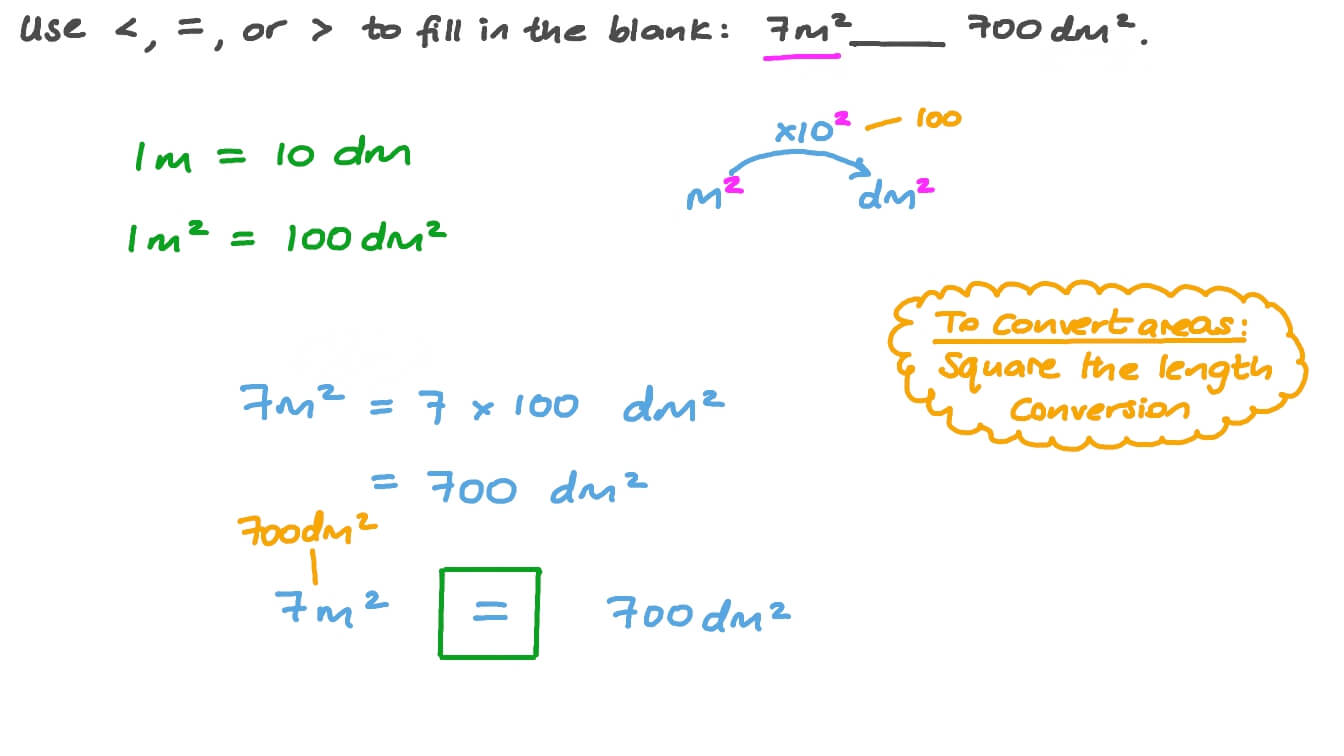 Use <, =, or > to fill in the blank: 7m² ____ 700 dm².
1m = 10 dm
1m² = 100 dm²
×10² — 100
m² dm²
To Convert areas:
Square the length
Conversion
7m² = 7 × 100 dm²
= 700 dm²
700dm²
7m² = 700dm²